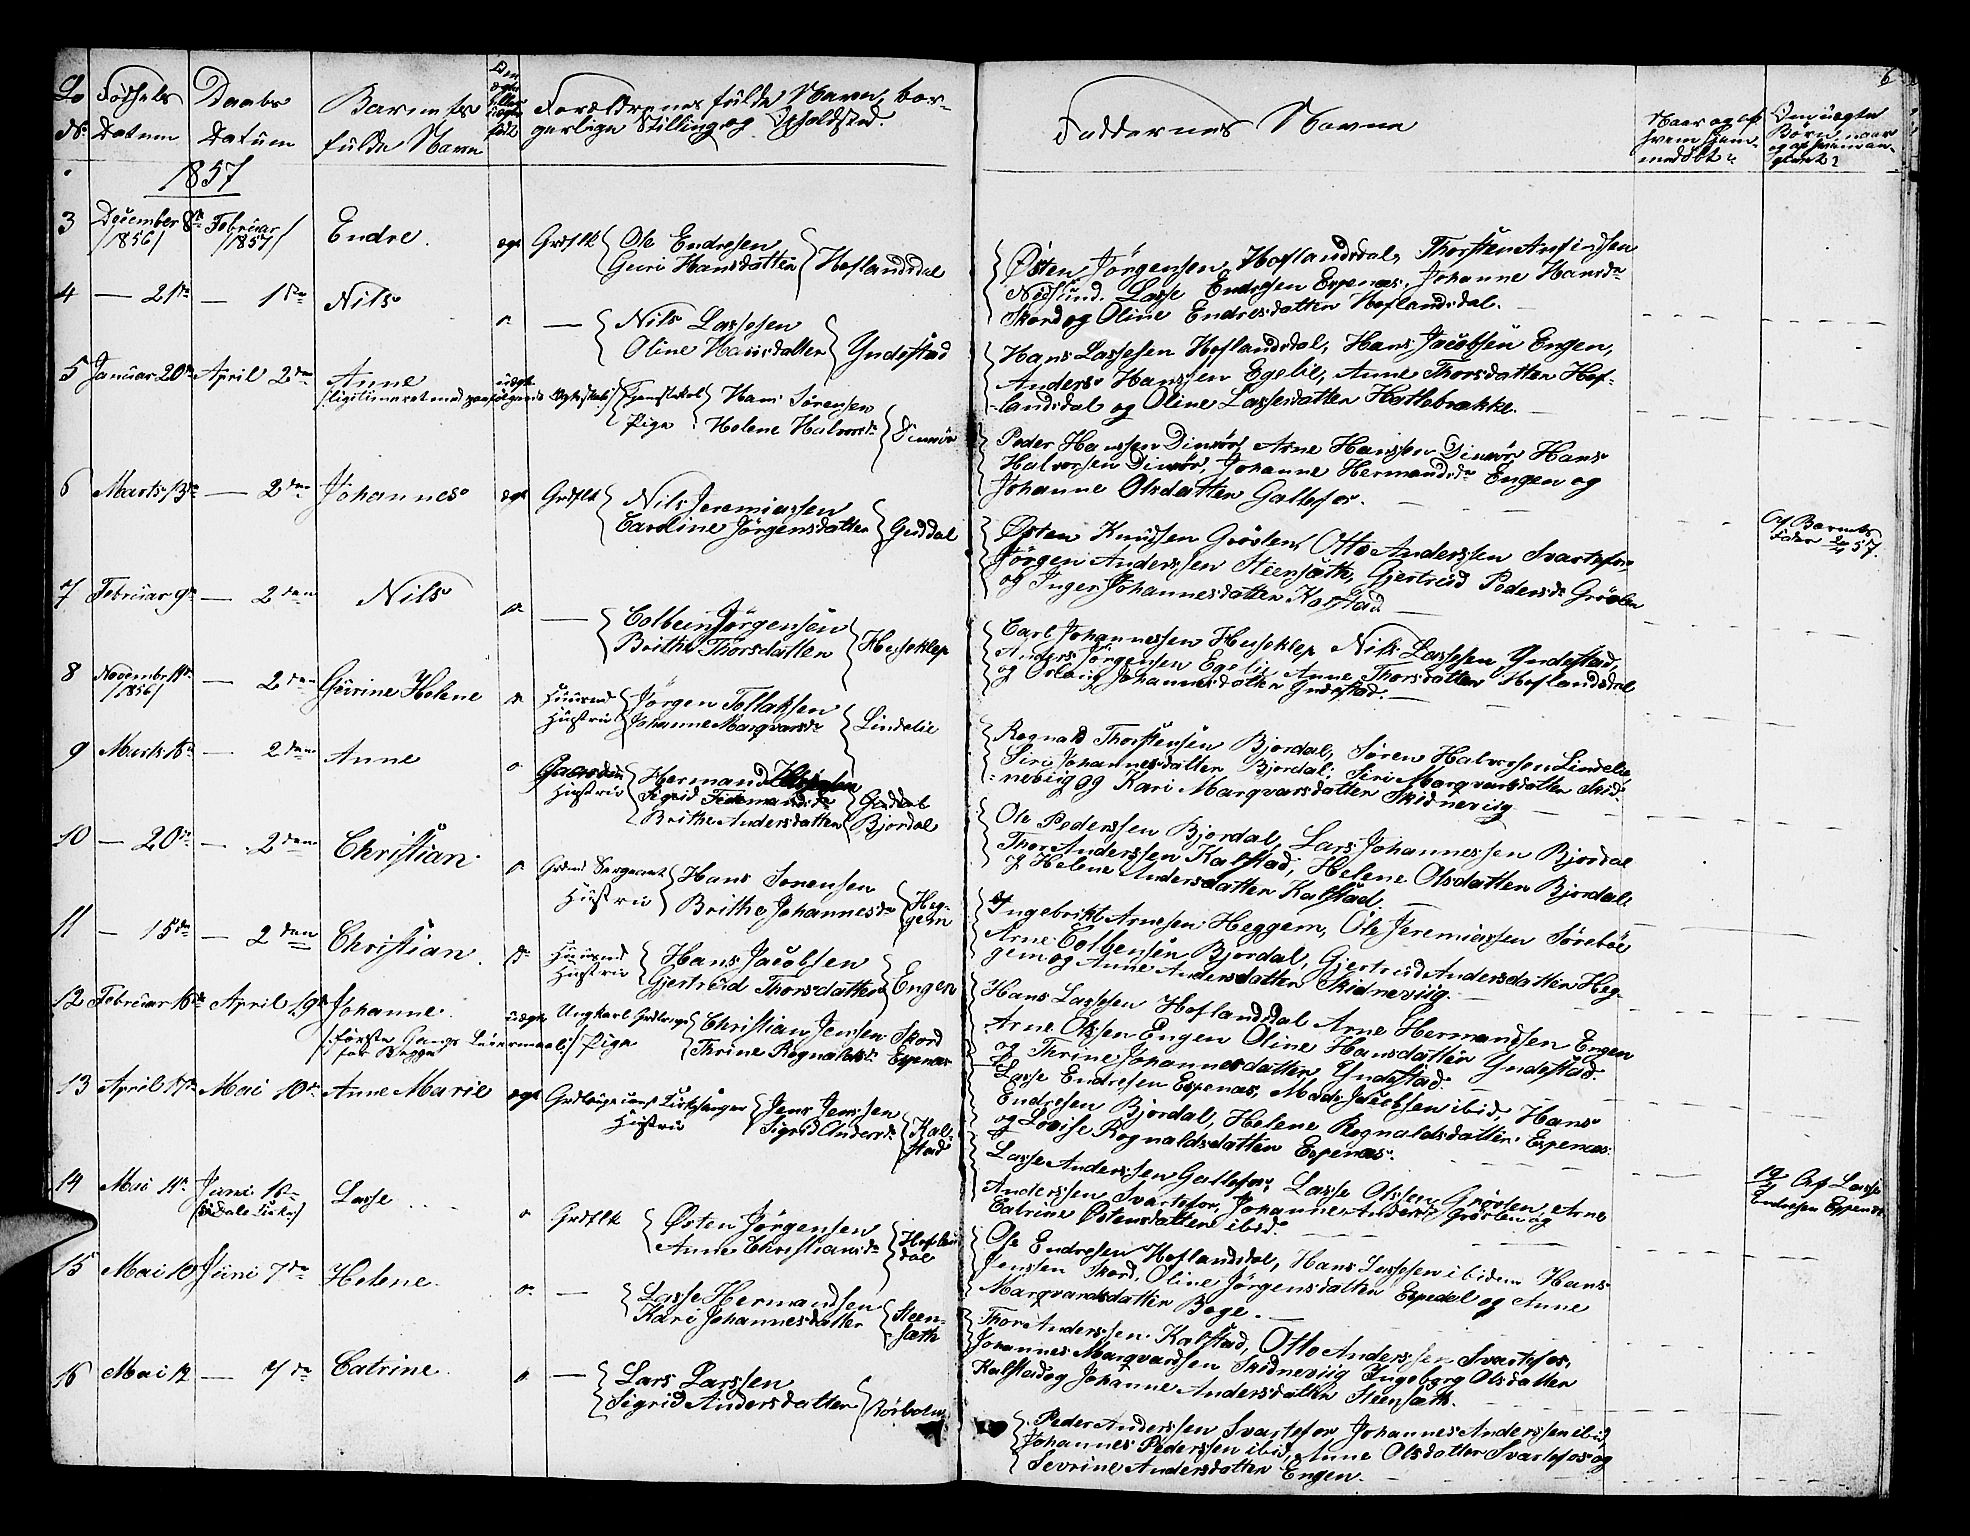 Lo No Fødsels Datum
Daabs Datum
Barnets fulde Navn
Om ægte eller uægte født
Forældrenes fulde Navn, borgerlige Stilling og Opholdsted.
Faddernes Navne
6
1857
3 December 8de /1856/ Februar /1857/ Endre. ægt Grdflk Ole Endresen
Guri Hansdatter Hoflandsdal
Østen Jörgensen Hoflandsdal, Thorsten Anfindsen
Nødsund. Lasse Endresen Espenæs. Johanne Hansdr
Skord og Oline Endresdatter Hoflandsdal.
4 — 21de — 1ste Nils — Nils Lassesen
Oline Hansdatter Yndestad
Hans Lassesen Hoflandsdal, Hans Jacobsen Engen,
Anders Hanssen Egelie, Anne Thorsdatter Hof-
landsdal og Oline Lassesdatter Hattebrække.
5 Januar 20de April 2den Anne uægte
Hans Sörensen
Pige Helene Halvorsdr
Peder Hanssen Dinsör, Arne Hanssen Dinsör Hans
Halvorsen Dinsör, Johanne Hermandsdr Engen og
Johanne Olsdatter Gallefos.
6 Marts 13de — 2den Johannes ægt Grdflk Nils Jeremiassen
Caroline Jörgensdatter Guddal
Østen Knudsen Gröslen, Otto Anderssen Svartefos,
Jörgen Anderssen Steensæth, Gjertrud Pedersdr Gröslen
og Inger Johannesdatter Kalstad
Af Barnets
Fader 57.
7 Februar 9de — 2den Nils — Colbein Jörgensen
Brithe Thorsdatter Huseklep
Carl Johannessen Huseklep Nils Lassesen Yndestad,
Anders Jörgensen Egelie, Anne Thorsdatter Hoflandsdal
og Johannesdatter Yndestad.
8 Novembr 11te /1856/ — 2den Gurine Helene Huusmd Jörgen Tollaksen
Hustru Johanne Marqvarsdr Lindelie
Rognald Thorstensen Bjordal, Sören Halvorsen Lindelie,
Siri Johannesdatter Bjordal, Siri Marqvarsdatter Skid-
neviig og Kari Marqvarsdatter Skidneviig
9 Marts 16de — 2den Anne Hermand
Hustru Sigrid
Brithe Andersdatter Bjordal
Ole Pederssen Bjordal, Lars Johannessen Bjordal
Thor Anderssen Kalstad, Helene Olsdatter Bjordal
og Helene Andersdatter Kalstad.
10 — 20de — 2den Christian Grdmd Sergeant Hans Sörensen
Hustru Brithe Johannesdr Heg-
gem
Ingebrikt Arnesen Heggem, Ole Jeremiassen Sörebøe
Arne Colbensen Bjordal, Gjertrud Andersdatter Heg-
gem og Anne Andersdatter Skidneviig.
11 — 15de — 2den Christian. Huusmd Hans Jacobsen
Hustru Gjertrud Thorsdatter Engen
Hans Lassesen Hoflandsdal Arne Hermandsen Engen
Arne Olssen Engen Oline Hansdatter Yndestad
og Thrine Johannesdatter Yndestad.
12 Februar 16de April 19de Johanne. uægte Ungkarl Christian Jenssen Skord
/:förste Gangs Leiermaal for Begge:/ Pige Thrine Rognaldsdr Espenæs
Lasse Endresen Espenæs, Mads Jacobsen ibid, Hans
Endresen Bjordal, Helene Rognaldsdatter Espenæs
og Lovise Rognaldsdatter Espenæs.
13 April 17de Mai 10de Anne Marie ægt Kirkesanger Jens Jenssen
Hustru Sigrid Andersdr Kal-
stad
Lasse Anderssen Gallefos, Lasse Olssen Gröslen, Arne
Anderssen Svartefos, Johanne Andersdr Gröslen og
Catrine Östensdatter ibid.
Af Lasse
Endresen Espenæs
14 Mai 11te Juni 1ste /i Dale Kirke/ Lasse Grdflk Østen Jörgensen
Anne Christiansdr Hoflandsdal
Ole Endresen Hoflandsdal, Hans Lassesen ibidem Hans
Jenssen Skord, Oline Jörgensdatter Espedal og Anne
Marqvardsdatter Boge.
15 Mai 10 Juni 7de Helene. — Lasse Hermandsen
Kari Johannesdatter Steen-
sæth
Thor Anderssen Kalstad, Otto Anderssen Svartefos,
Johannes Marqvardsen Skidneviig Ingeborg Olsdatter
Kalstad og Johanne Andersdatter Steensæth.
16 Mai 12 — 7de Catrine. — Lars Larssen
Sigrid Andersdatter
Peder Anderssen Svartefos, Johannes Anderssen ibid,
Johannes Pederssen ibid, Anne Olsdatter Svartefos og
Sevrine Andersdatter Engen.